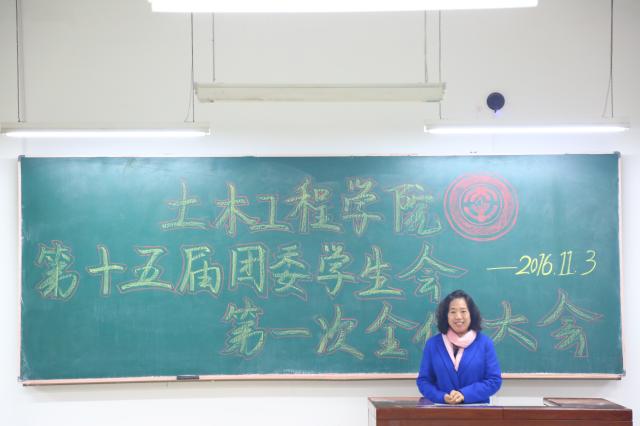 土木工程学院
第十五届团委学生会
—2016.11.3
第一次全体大会